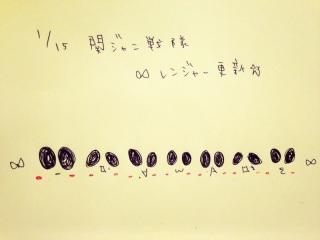 1/15 関ジャニ戦隊
∞レンジャー更新☆
∞ ∞